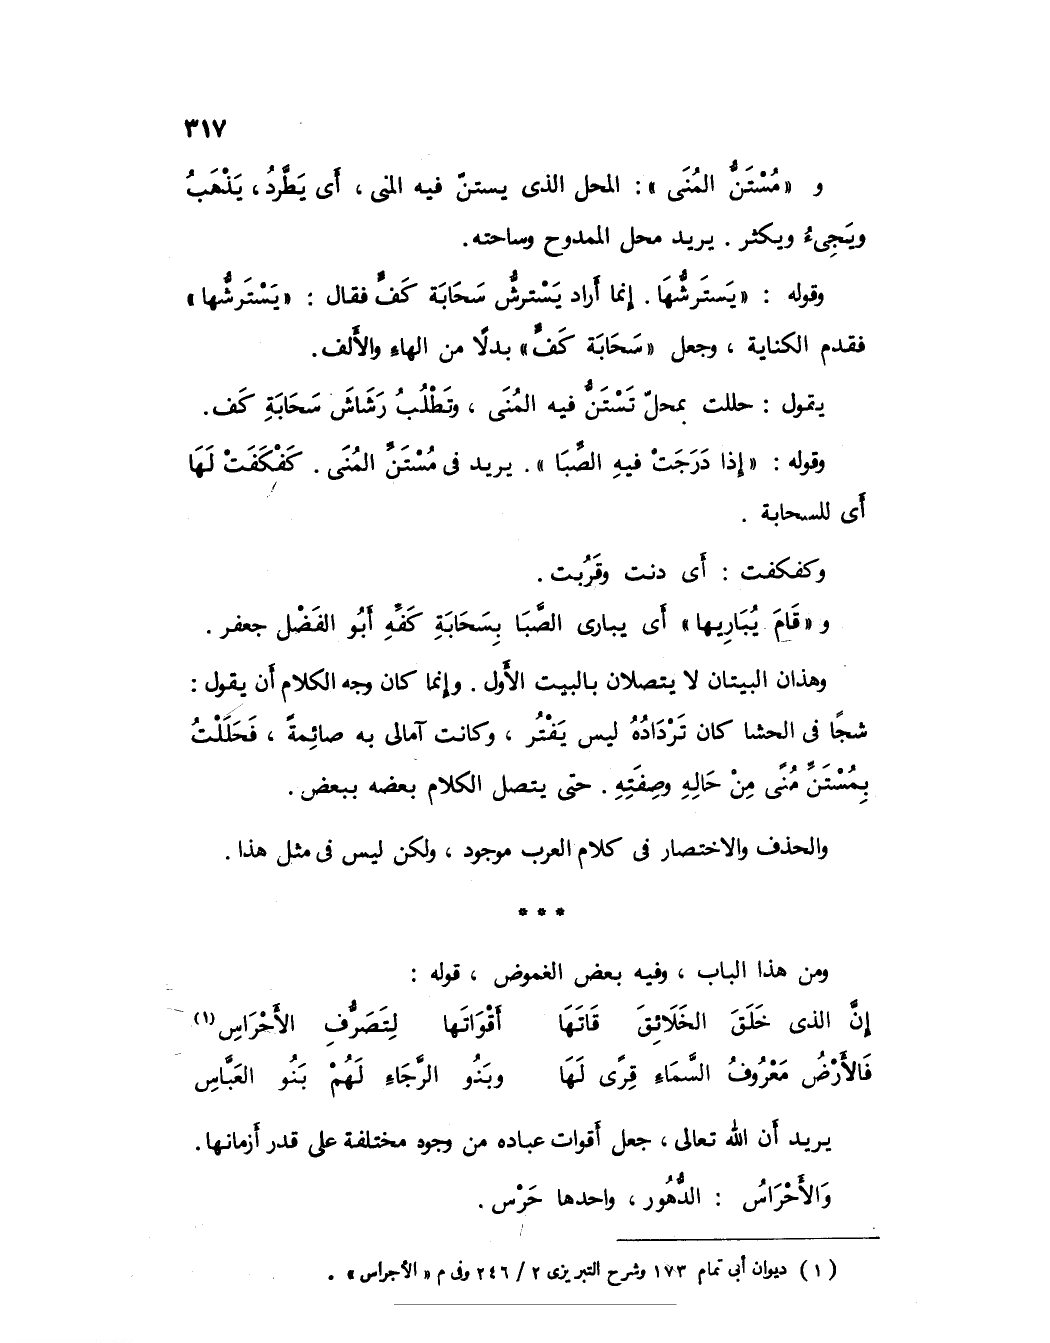 ٣١٧
و «مُسْتَنُّ المُنَى» : المحل الذى يستنّ فيه المنى ، أى يَطَّرِدُ ، يَذْهَبُ
ويَجِىءُ ويكثر . يريد محل الممدوح وساحته .
وقوله : «يَستَرِشُّهَا . إنما أراد يَسْترشُّ سَحَابَة كَفٍّ فقال : «يَسْتَرشُّها»
فقدم الكناية ، وجعل «سَحَابَة كَفٍّ» بدلًا من الهاء والألف .
يقول : حللت بمحلّ تَسْتَنُّ فيه المُنَى ، وتَطْلُبُ رَشَاشَ سَحَابَةِ كَف .
وقوله : «إذا دَرَجَتْ فيهِ الصَّبَا» . يريد فى مُسْتَنِّ المُنَى . كَفْكَفَتْ لَهَا
أى للسحابة .
وكفكفت : أى دنت وقَرُبت .
و «قَامَ يُبَارِيها» أى يبارى الصَّبَا بِسَحَابَةِ كَفِّهِ أَبُو الفَضْل جعفر .
وهذان البيتان لا يتصلان بالبيت الأَول . وإنما كان وجه الكلام أن يقول :
شجًا فى الحشا كان تَرْدَادُهُ ليس يَفْتُر ، وكانت آمالى به صائِمةً ، فَحَلَلْتُ
بِمُسْتَنِّ مُنًى مِنْ حَالِهِ وصِفَتِهِ . حتى يتصل الكلام بعضه ببعض .
والحذف والاختصار فى كلام العرب موجود ، ولكن ليس فى مثل هذا .
* * *
ومن هذا الباب ، وفيه بعض الغموض ، قوله :
إنَّ الذى خَلَقَ الخَلَائِقَ قَاتَهَا أَقْوَاتَها لِتَصَرُّفِ الأَحْرَاسِ (١)
فَالأَرْضُ مَعْرُوفُ السَّمَاءِ قِرًى لَهَا وبَنُو الرَّجَاءِ لَهُمْ بَنُو العَبَّاسِ
يريد أن الله تعالى ، جعل أقوات عباده من وجوه مختلفة على قدر أزمانها .
وَالأَحْرَاسُ : الدُّهُور ، واحدها حَرْس .
(١) ديوان أبى تمام ١٧٣ وشرح التبريزى ٢ / ٢٤٦ وفى م «الأجراس» .